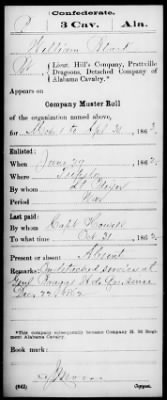 Confederate.
P 3 Cav. Ala.
William
Pvt, Lieut. Hill's Company, Prattville
Dragoons, Detached Company of
Alabama Cavalry.*
Appears on
Company Muster Roll
of the organization named above,
for to Apl 30, 1862.
Enlisted:
When June 29, 186
Where Tupelo
By whom
Period War
Last paid:
By whom Capt
To what time Oct 31, 186
Present or absent Absent
Remarks: On detached services at
Genl Bragg's Hd Qrs since
Dec. 22, 1862
*This company subsequently became Company H, 3d Regi-
ment Alabama Cavalry.
Book mark:
(642) Copyist.